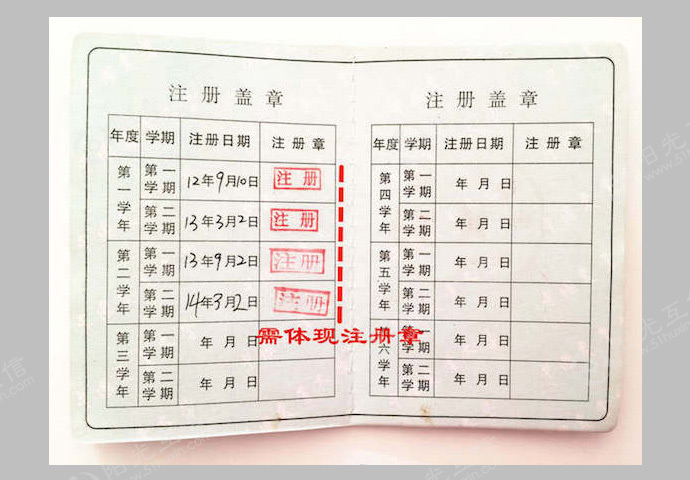 注册盖章
年度 学期 注册日期 注册章
第一学年 第一学期 12年9月10日 注册
第二学期 13年3月2日 注册
第二学年 第一学期 13年9月2日 注册
第二学期 14年3月2日 注册
第三学年 第一学期 年 月 日
第二学期 年 月 日
需体现注册章
注册盖章
年度 学期 注册日期 注册章
第四学年 第一学期 年 月 日
第二学期 年 月 日
第五学年 第一学期 年 月 日
第二学期 年 月 日
第六学年 第一学期 年 月 日
第二学期 年 月 日